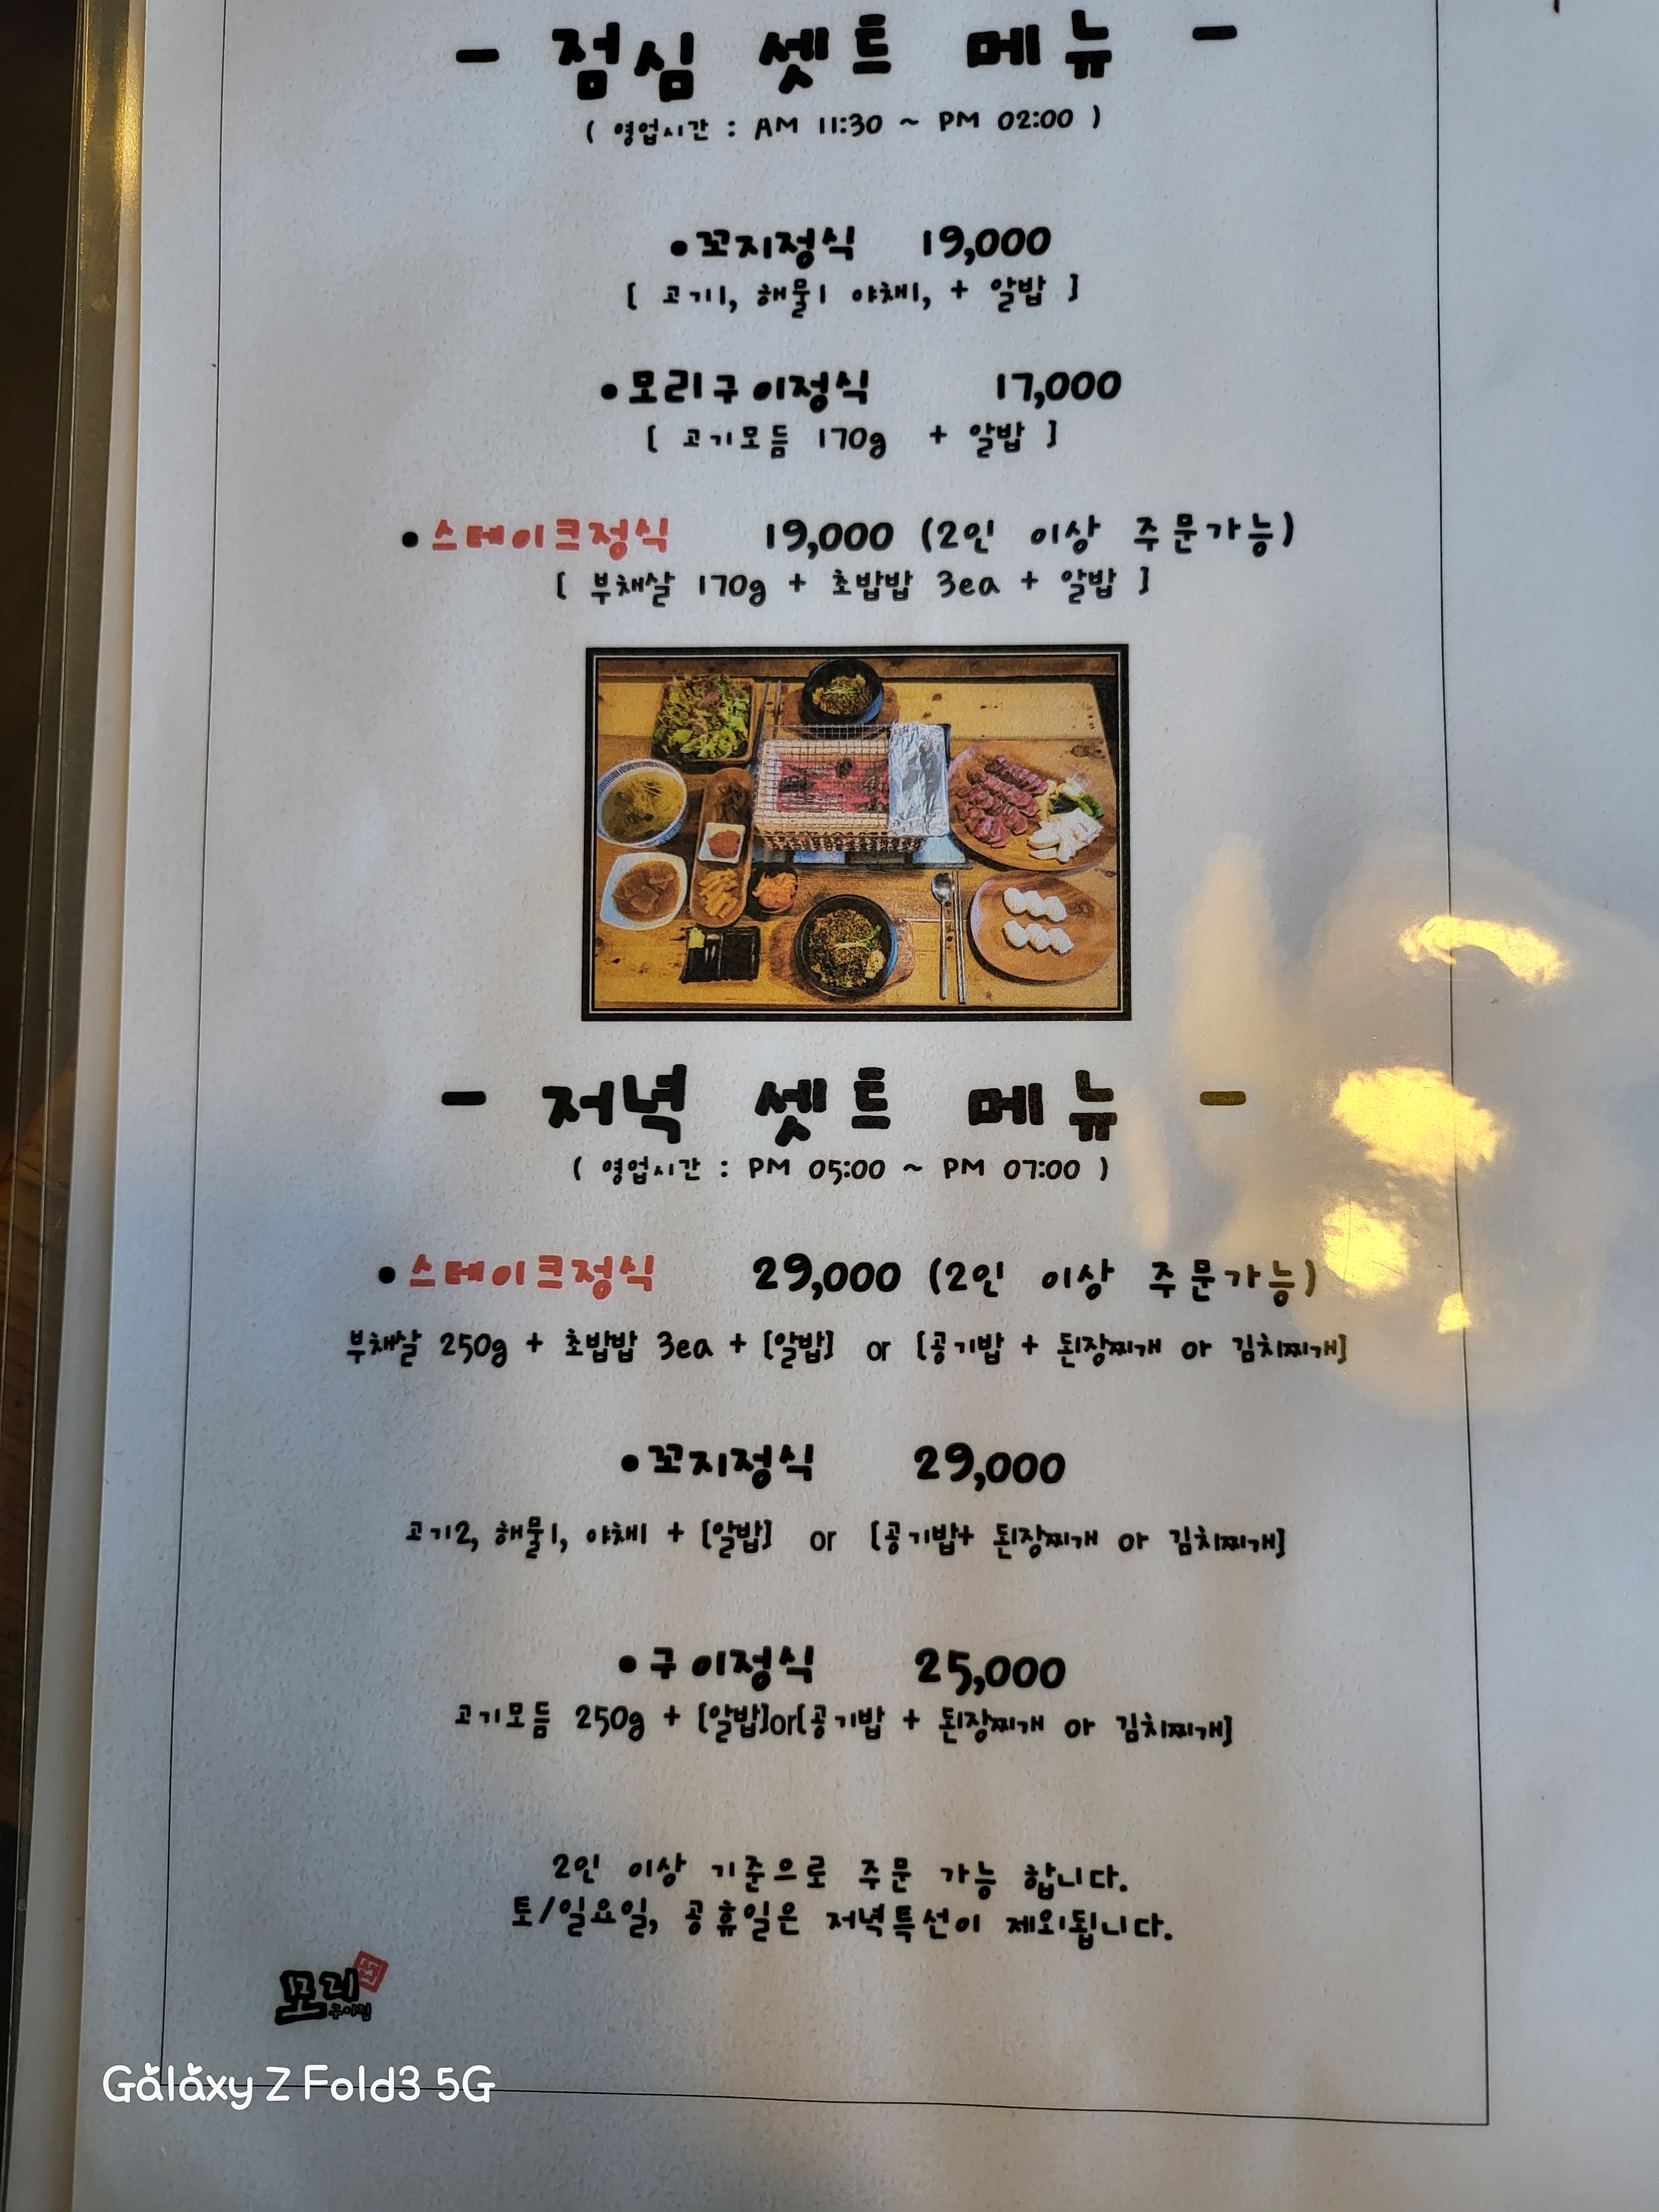 - 점심 셋트 메뉴 -
( 영업시간 : AM 11:30 ~ PM 02:00 )
•꼬지정식 19,000
[ 고기1, 해물1 야채1, + 알밥 ]
•모리구이정식 17,000
[ 고기모듬 170g + 알밥 ]
•스테이크정식 19,000 (2인 이상 주문가능)
[ 부채살 170g + 초밥밥 3ea + 알밥 ]
- 저녁 셋트 메뉴 -
( 영업시간 : PM 05:00 ~ PM 07:00 )
•스테이크정식 29,000 (2인 이상 주문가능)
부채살 250g + 초밥밥 3ea + [알밥] or [공기밥 + 된장찌개 or 김치찌개]
•꼬지정식 29,000
고기2, 해물1, 야채1 + [알밥] or [공기밥+ 된장찌개 or 김치찌개]
•구이정식 25,000
고기모듬 250g + [알밥]or[공기밥 + 된장찌개 or 김치찌개]
2인 이상 기준으로 주문 가능 합니다.
토/일요일, 공휴일은 저녁특선이 제외됩니다.
모리
Galaxy Z Fold3 5G